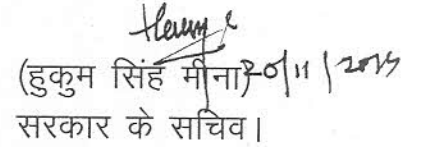 (हुकुम सिंह मीना) 20/11/2015
सरकार के सचिव।